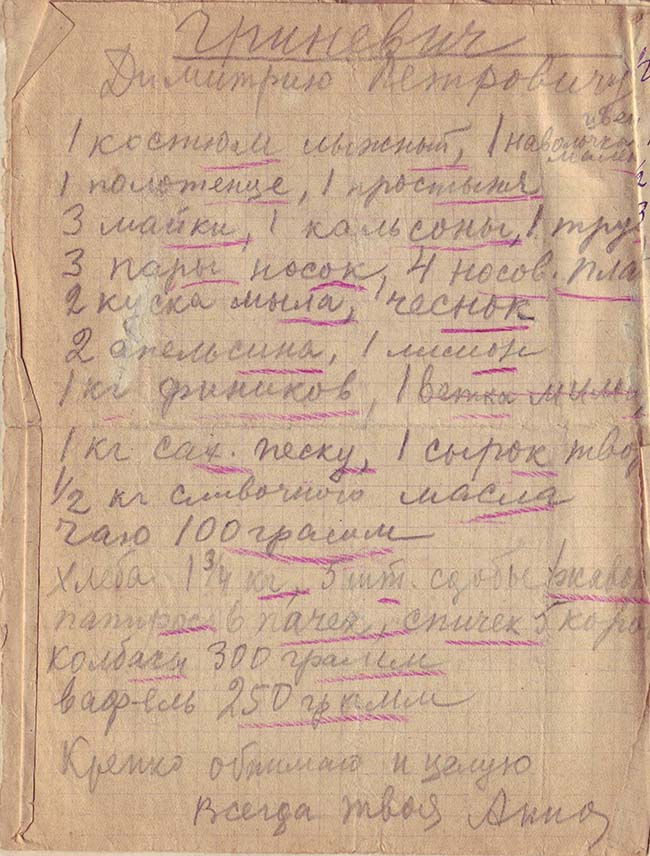 Гриневич
Димитрию Петровичу
1 костюм лыжный, 1 наволочка
1 полотенце, 1 простыня
3 майки, 1 кальсоны, 1 тру
3 пары носок, 4 носов. пла
2 куска мыла, чеснок
2 апельсина, 1 лимон
1 кг фиников, 1 ветка мим
1 кг сах. песку, 1 сырок твор
1/2 кг сливочного масла
чаю 100 грамм
хлеба 1 3/4 кг, 5 шт. сдобы
папирос 6 пачек, спичек 5 коро
колбасы 300 грамм
вафель 250 грамм
Крепко обнимаю и целую
всегда твоя Анна